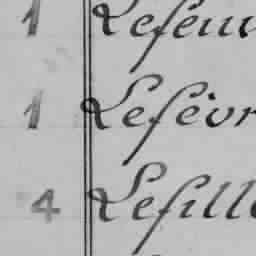 1 Lefeuv
1 Lefèvr
4 Lefill